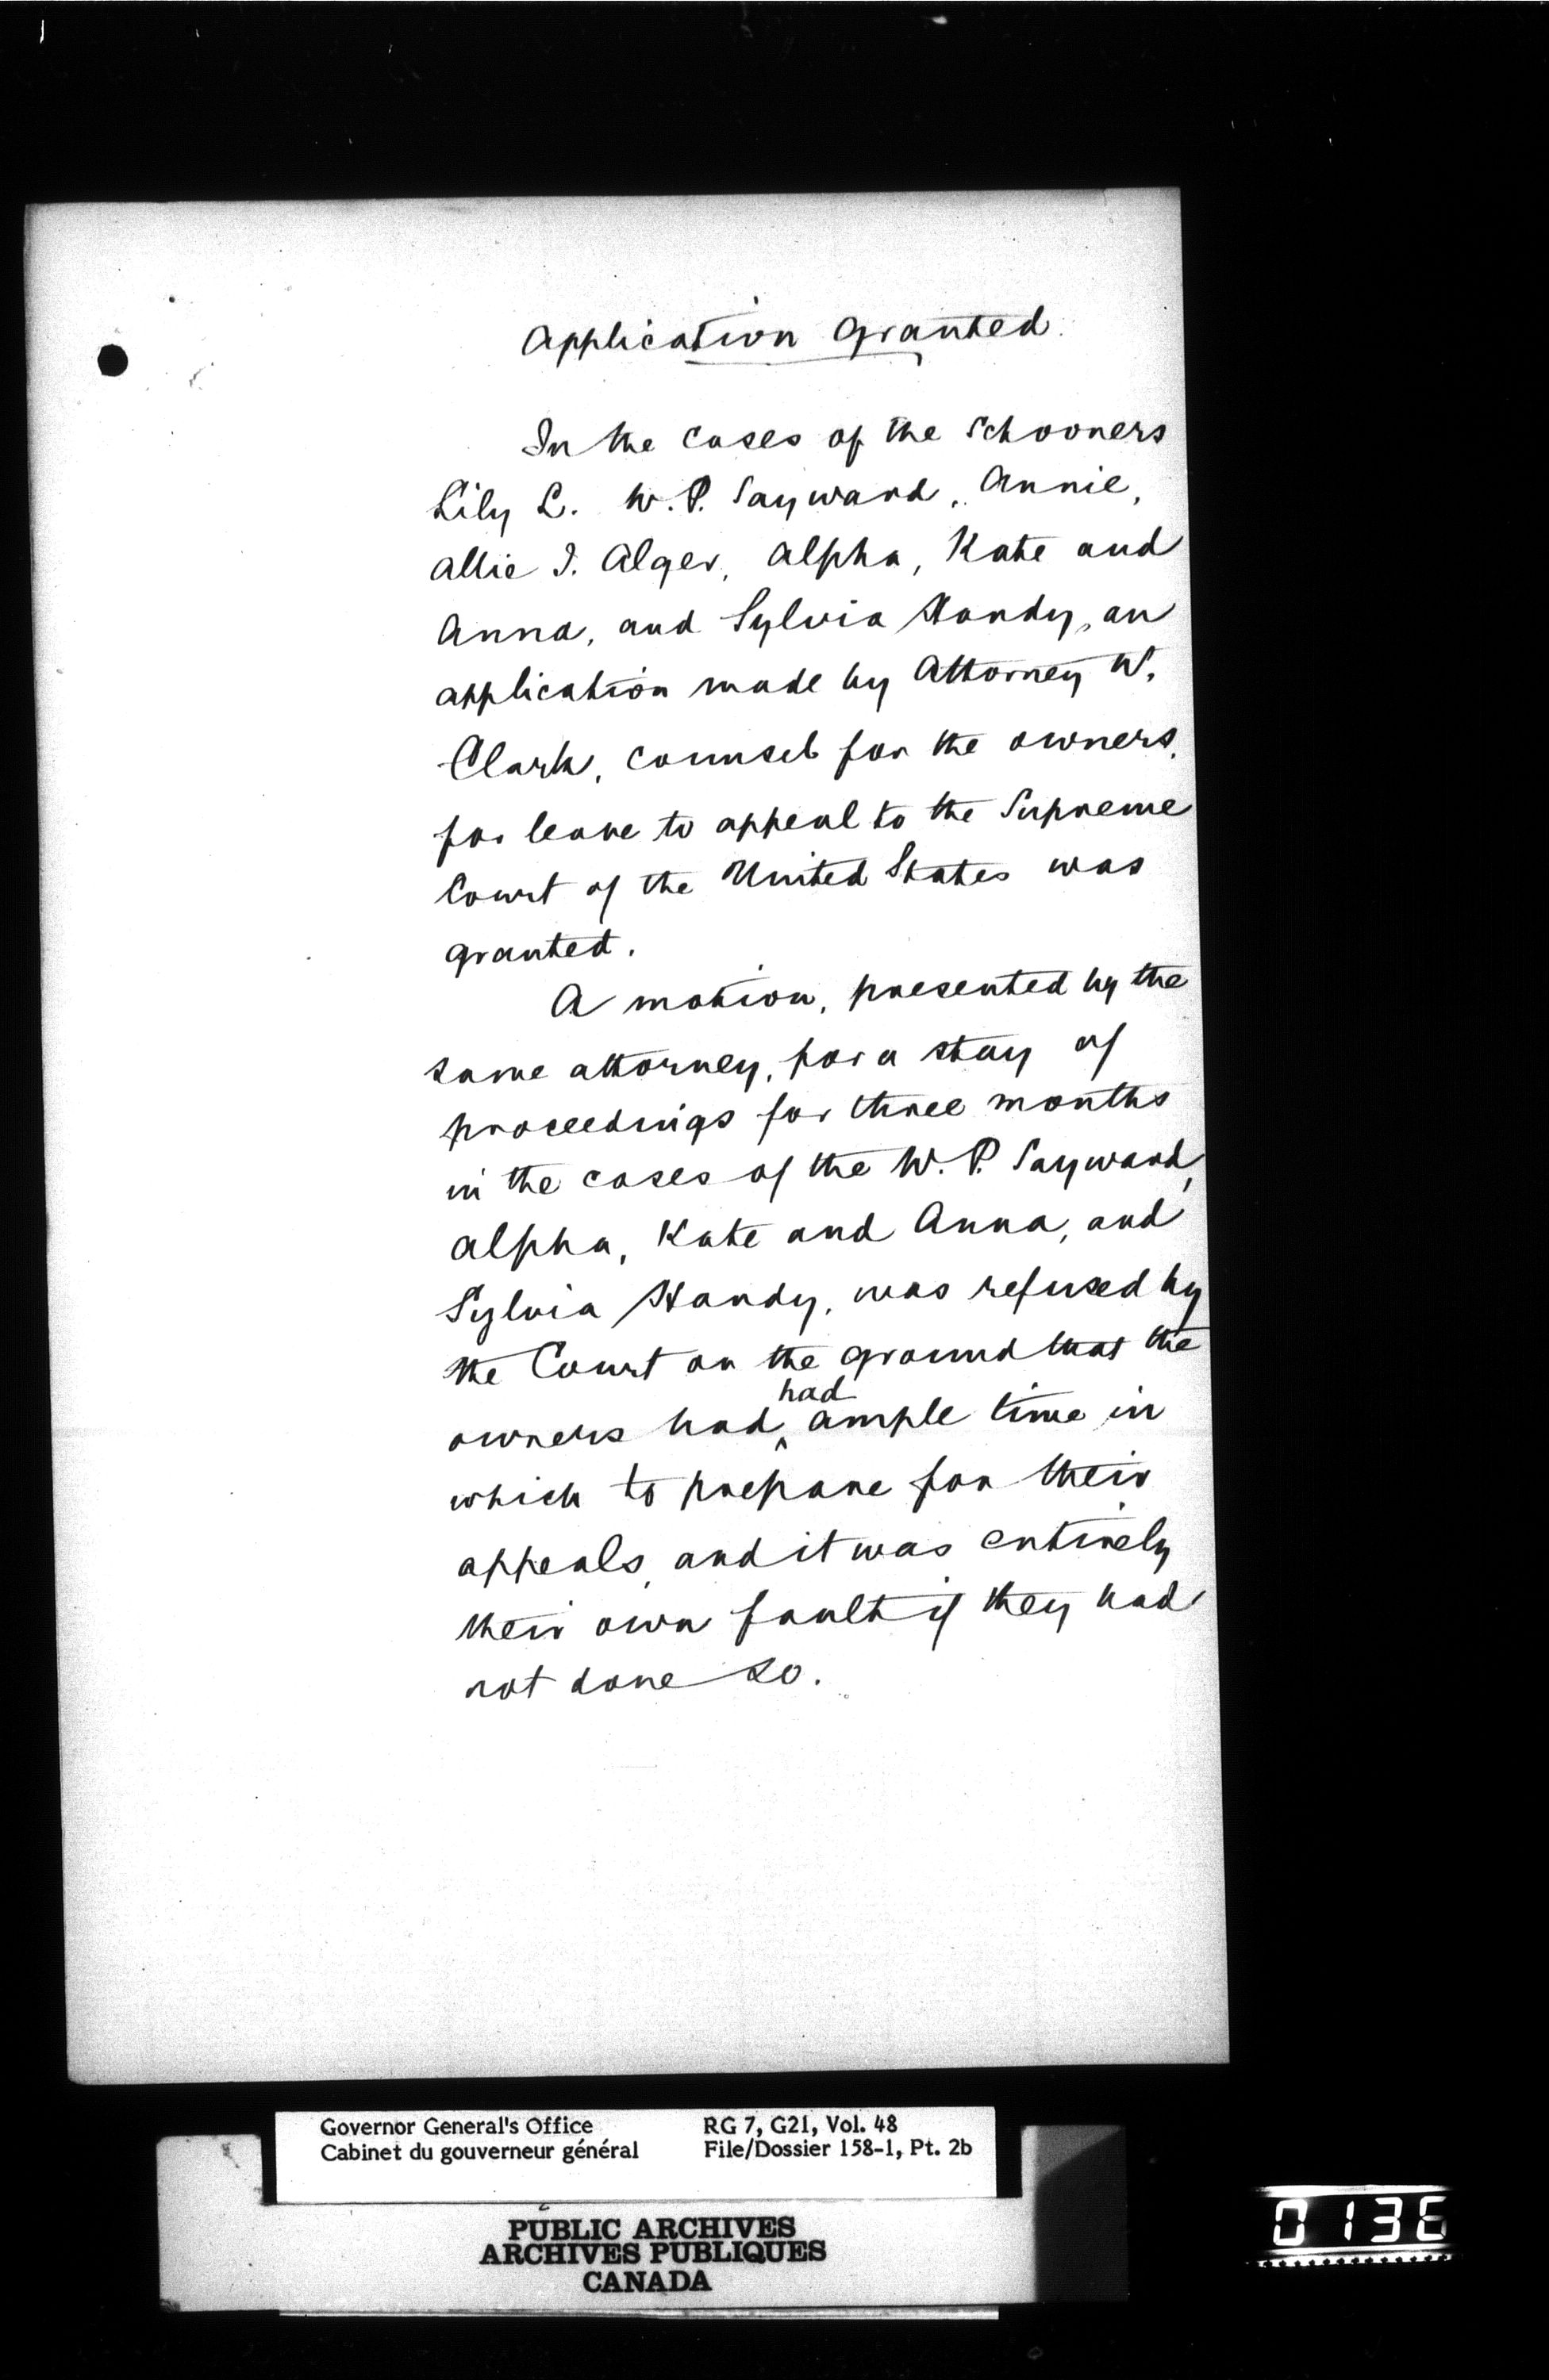 Application Granted.
In the cases of the Schooners
Lily L. W. P. Sayward, Annie,
Allie I. Alger, Alpha, Kate and
Anna, and Sylvia Handy, an
application made by Attorney W.
Clark, counsel for the owners,
for leave to appeal to the Supreme
Court of the United States was
granted.
A motion, presented by the
same attorney, for a stay of
proceedings for three months
in the cases of the W. P. Sayward,
Alpha, Kate and Anna, and
Sylvia Handy, was refused by
the Court on the ground that the
owners had had ample time in
which to prepare for their
appeals, and it was entirely
their own fault if they had
not done so.
Governor General's Office RG 7, G21, Vol. 48
Cabinet du gouverneur général File/Dossier 158-1, Pt. 2b
PUBLIC ARCHIVES
ARCHIVES PUBLIQUES
CANADA